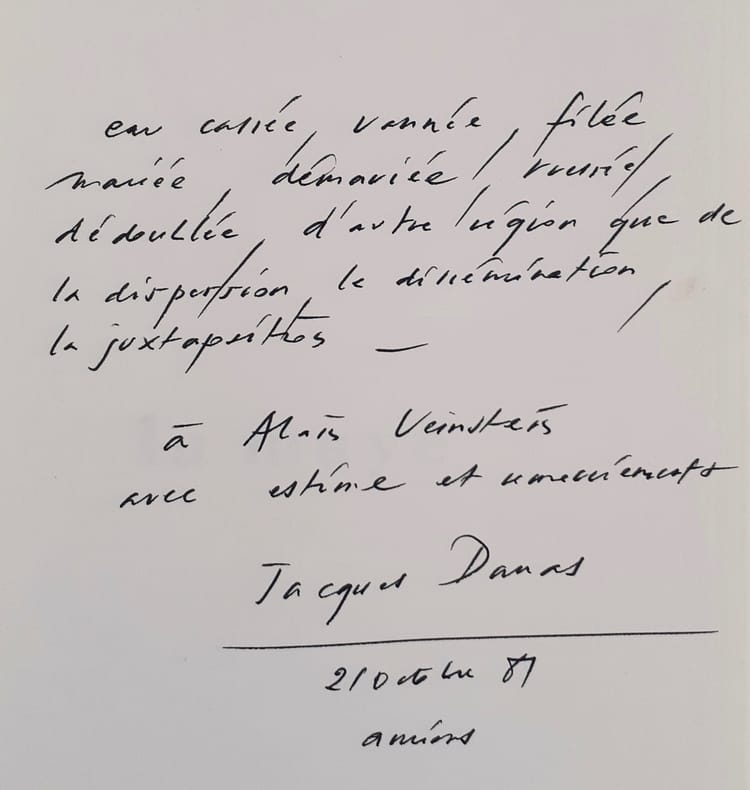 eau cassée, vannée, filée,
mariée, démariée, 
dédoublée, d'autre région que de
la dispersion, la dissémination,
la juxtaposition —
à Alain Veinstein
avec estime et remerciements
Jacques Darras
21 Octobre 87
amiens